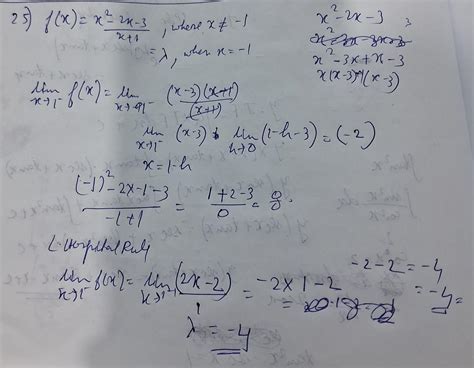 25) f(x) = x² - 2x - 3 / x + 1 , where x ≠ -1
= λ , when x = -1
x² - 2x - 3
x² - 3x + x - 3
x(x-3)+1(x-3)
lim x→1⁻ f(x) = lim x→-1⁻ (x-3)(x+1) / (x+1)
lim x→1⁻ (x-3) lim h→0 (1-h-3) = (-2)
x = 1-h
(-1)² - 2x-1 - 3 / -1+1 = 1+2-3 / 0 = 0/0
L-Hospital Rule
lim x→1⁻ f(x) = lim x→1⁻ (2x-2) / 1 = -2x1-2
-2-2 = -4
= -4
λ = -4